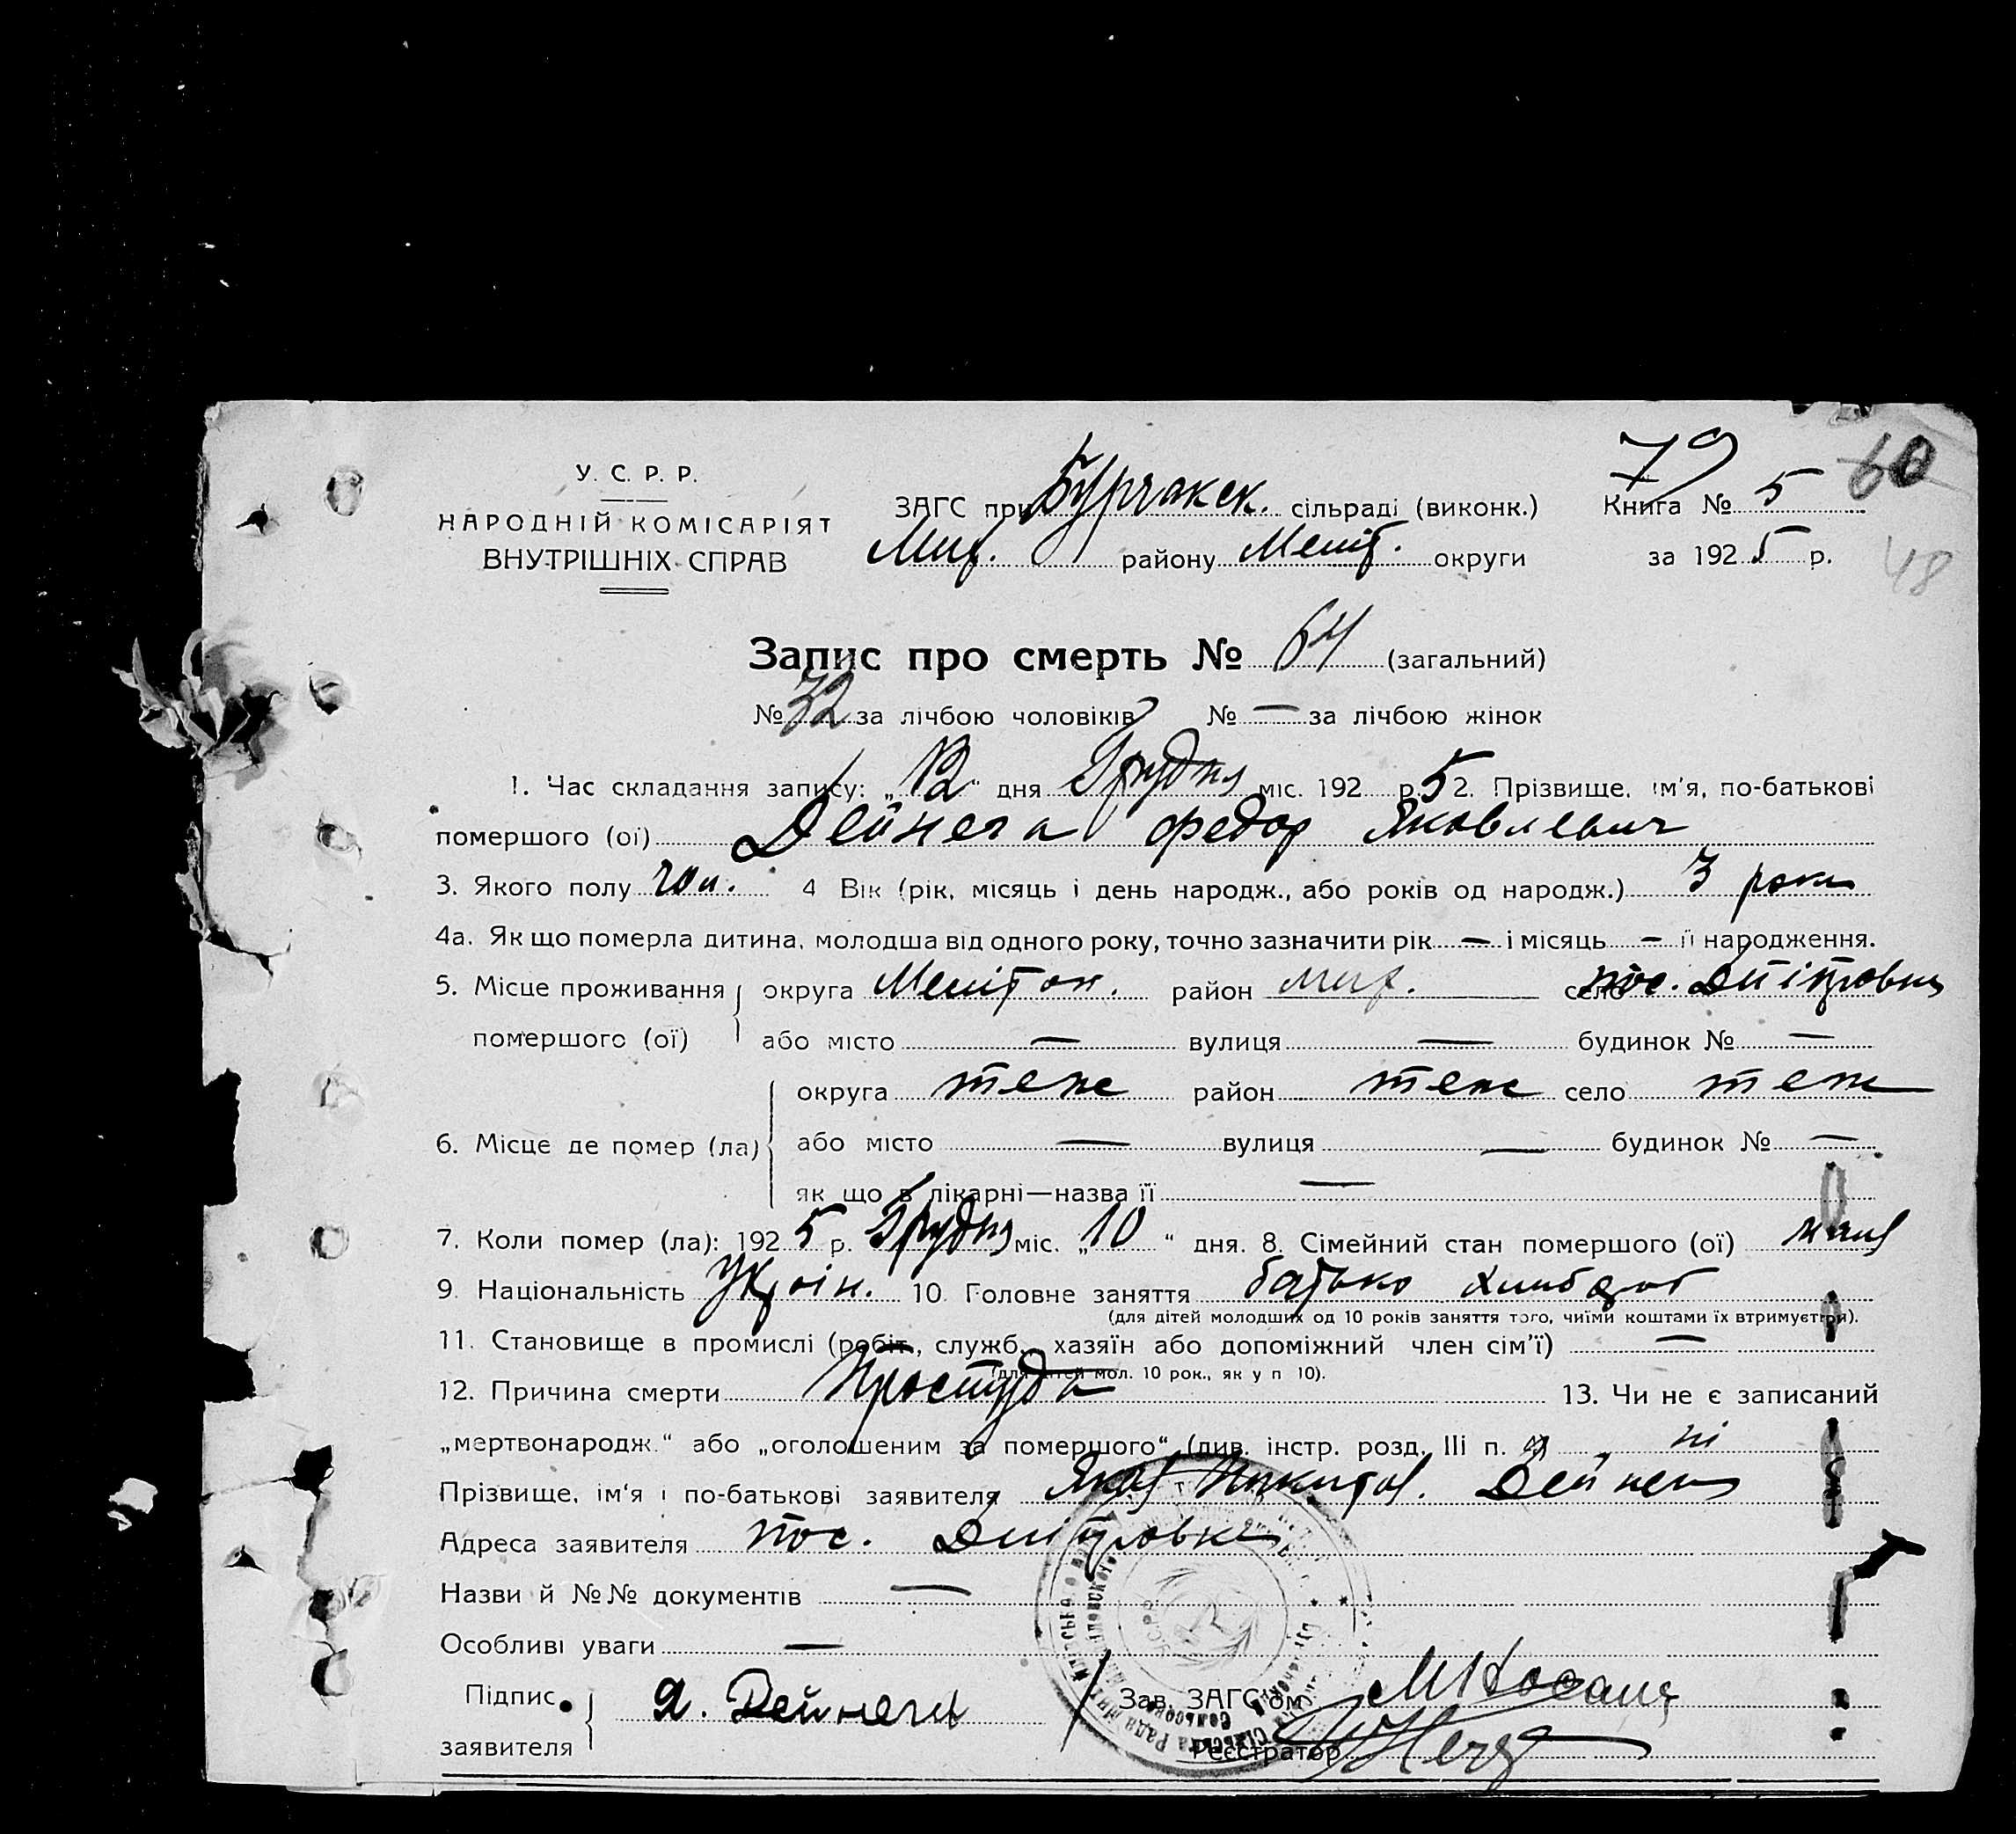 79 60
У. С. Р. Р.
НАРОДНІЙ КОМІСАРІЯТ
ВНУТРІШНІХ СПРАВ
ЗАГС при Бурчакск. сільраді (виконк.) Книга № 5
район у Меліт. округи за 1925 р. 48
Запис про смерть № 64 (загальний)
№ 32 за лічбою чоловіків № — за лічбою жінок
1. Час складання запису: „12“ дня Грудня міс. 192 р. 5 2. Прізвище, ім'я, по-батькові
помершого (ої) Дейнега Федор Яковлевич
3. Якого полу чол. 4 Вік (рік, місяць і день народж., або років од народж.) 3 роки
4а. Як що померла дитина, молодша від одного року, точно зазначити рік — і місяць — її народження.
5. Місце проживання округа Мелітоп. район село пос. Дмітровка
помершого (ої) або місто — вулиця — будинок № —
округа теж район теж село теж
6. Місце де помер (ла) або місто — вулиця — будинок № —
як що в лікарні—назва її —
7. Коли помер (ла): 1925 р. Грудня міс. „10“ дня. 8. Сімейний стан помершого (ої)
9. Національність Україн. 10. Головне заняття батько хлібороб
(для дітей молодших од 10 років заняття того, чиїми коштами їх втримується).
11. Становище в промислі (робіт., служб., хазяїн або допоміжний член сім'ї) —
(для дітей мол. 10 рок., як у п 10).
12. Причина смерти Простуда 13. Чи не є записаний
„мертвонародж.“ або „оголошеним за помершого“ (див. інстр. розд. III п. ні
Прізвище, ім'я і по-батькові заявителя Яков Никитов. Дейнега
Адреса заявителя пос. Дмітровка
Назви й №№ документів —
Особливі уваги —
Підпис Я. Дейнега Зав. ЗАГС'ом
заявителя Реєстратор